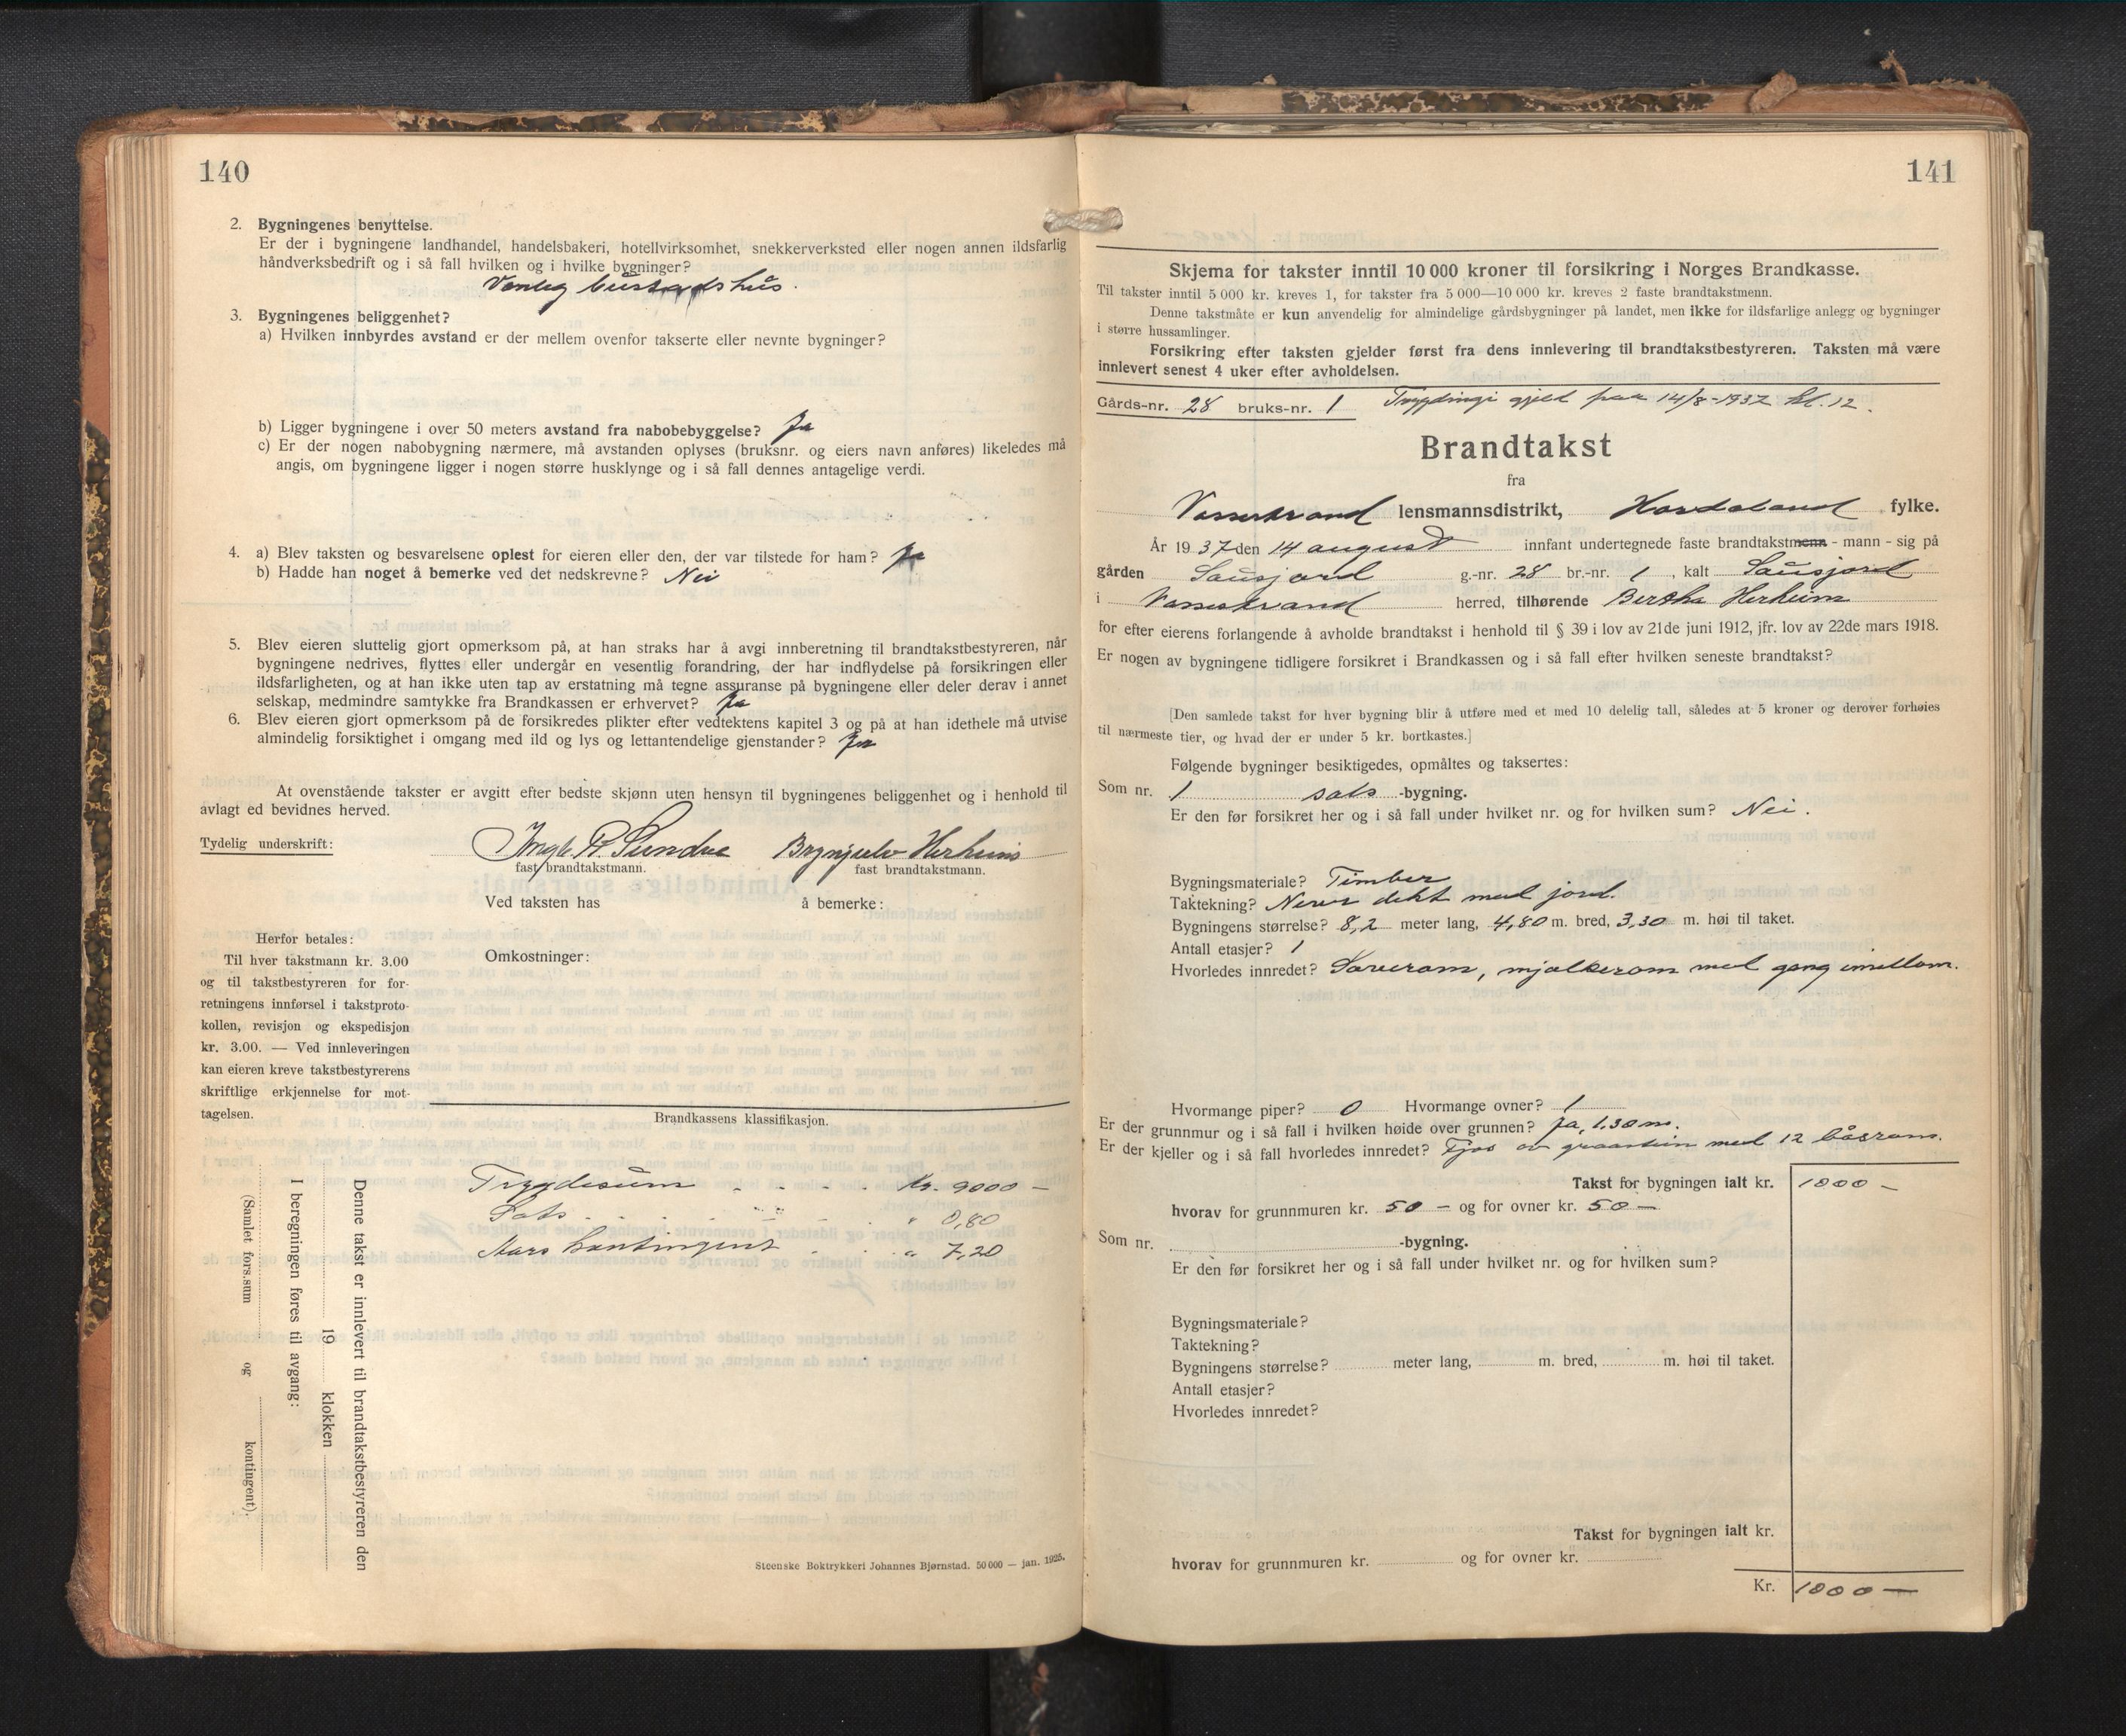 140
2. Bygningenes benyttelse.
Er der i bygningene landhandel, handelsbakeri, hotellvirksomhet, snekkerverksted eller nogen annen ildsfarlig
håndverksbedrift og i så fall hvilken og i hvilke bygninger?
Vanleg bustadshus.
3. Bygningenes beliggenhet?
a) Hvilken innbyrdes avstand er der mellem ovenfor takserte eller nevnte bygninger?
b) Ligger bygningene i over 50 meters avstand fra nabobebyggelse? Ja
c) Er der nogen nabobygning nærmere, må avstanden oplyses (bruksnr. og eiers navn anføres) likeledes må
angis, om bygningene ligger i nogen større husklynge og i så fall dennes antagelige verdi.
4. a) Blev taksten og besvarelsene oplest for eieren eller den, der var tilstede for ham? Ja
b) Hadde han noget å bemerke ved det nedskrevne? Nei
5. Blev eieren sluttelig gjort opmerksom på, at han straks har å avgi innberetning til brandtakstbestyreren, når
bygningene nedrives, flyttes eller undergår en vesentlig forandring, der har indflydelse på forsikringen eller
ildsfarligheten, og at han ikke uten tap av erstatning må tegne assuranse på bygningene eller deler derav i annet
selskap, medmindre samtykke fra Brandkassen er erhvervet? Ja
6. Blev eieren gjort opmerksom på de forsikredes plikter efter vedtektens kapitel 3 og på at han idethele må utvise
almindelig forsiktighet i omgang med ild og lys og lettantendelige gjenstander? Ja
At ovenstående takster er avgitt efter bedste skjønn uten hensyn til bygningenes beliggenhet og i henhold til
avlagt ed bevidnes herved.
Tydelig underskrift: R. Sundve Brynjulv Herheim
fast brandtakstmann. fast brandtakstmann.
Ved taksten has å bemerke:
Herfor betales:
Til hver takstmann kr. 3.00
og til takstbestyreren for for-
retningens innførsel i takstproto-
kollen, revisjon og ekspedisjon
kr. 3.00. — Ved innleveringen
kan eieren kreve takstbestyrerens
skriftlige erkjennelse for mot-
tagelsen.
Omkostninger:
Brandkassens klassifikasjon.
Trygdesum - - - - kr. 9000 -
Sats - - - " 0,80
Aars kontingent - - - " 7,20
Denne takst er innlevert til brandtakstbestyreren den
19 klokken
I beregningen føres til avgang:
(Samlet fors.sum og kontingent).
Steenske Boktrykkeri Johannes Bjørnstad. 50 000 — jan. 1925.
141
Skjema for takster inntil 10 000 kroner til forsikring i Norges Brandkasse.
Til takster inntil 5 000 kr. kreves 1, for takster fra 5 000—10 000 kr. kreves 2 faste brandtakstmenn.
Denne takstmåte er kun anvendelig for almindelige gårdsbygninger på landet, men ikke for ildsfarlige anlegg og bygninger
i større hussamlinger.
Forsikring efter taksten gjelder først fra dens innlevering til brandtakstbestyreren. Taksten må være
innlevert senest 4 uker efter avholdelsen.
Gårds-nr. 28 bruks-nr. 1 Trygdingi gjeld fraa 14/8-1937 kl. 12.
Brandtakst
fra
Vossestrand lensmannsdistrikt, Hordaland fylke.
År 1937 den 14 august innfant undertegnede faste brandtakstmenn - mann - sig på
gården Sausjord g.-nr. 28 br.-nr. 1, kalt Sausjord
i Vossestrand herred, tilhørende Bertha Herheim
for efter eierens forlangende å avholde brandtakst i henhold til § 39 i lov av 21de juni 1912, jfr. lov av 22de mars 1918.
Er nogen av bygningene tidligere forsikret i Brandkassen og i så fall efter hvilken seneste brandtakst?
[Den samlede takst for hver bygning blir å utføre med et med 10 delelig tall, således at 5 kroner og derover forhøies
til nærmeste tier, og hvad der er under 5 kr. bortkastes.]
Følgende bygninger besiktigedes, opmåltes og taksertes:
Som nr. 1 sels -bygning.
Er den før forsikret her og i så fall under hvilket nr. og for hvilken sum? Nei.
Bygningsmateriale? Timber
Taktekning? Never dekt med jord.
Bygningens størrelse? 8,2 meter lang, 4,80 m. bred, 3,30 m. høi til taket.
Antall etasjer? 1
Hvorledes innredet? Soverom, mjølkerom med gang imellom.
Hvormange piper? 0 Hvormange ovner? 1
Er der grunnmur og i så fall i hvilken høide over grunnen? Ja, 1.30 m.
Er der kjeller og i så fall hvorledes innredet? Fjos av graastein med 12 båsrom.
Takst for bygningen ialt kr. 1000 -
hvorav for grunnmuren kr. 50 - og for ovner kr. 50 -
Som nr. -bygning.
Er den før forsikret her og i så fall under hvilket nr. og for hvilken sum?
Bygningsmateriale?
Taktekning?
Bygningens størrelse? meter lang, m. bred, m. høi til taket.
Antall etasjer?
Hvorledes innredet?
Takst for bygningen ialt kr.
hvorav for grunnmuren kr. og for ovner kr.
Kr. 1000 -